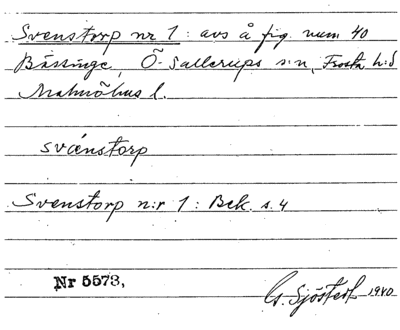 Svenstorp nr 1: avs å fig. num 40
Bässinge, Ö-Sallerups s:n, Frosta h:d
Malmöhus l.
svænstorp
Svenstorp n:r 1: Bek. s. 4
Nr 5573,
G. Sjöstedt 1940